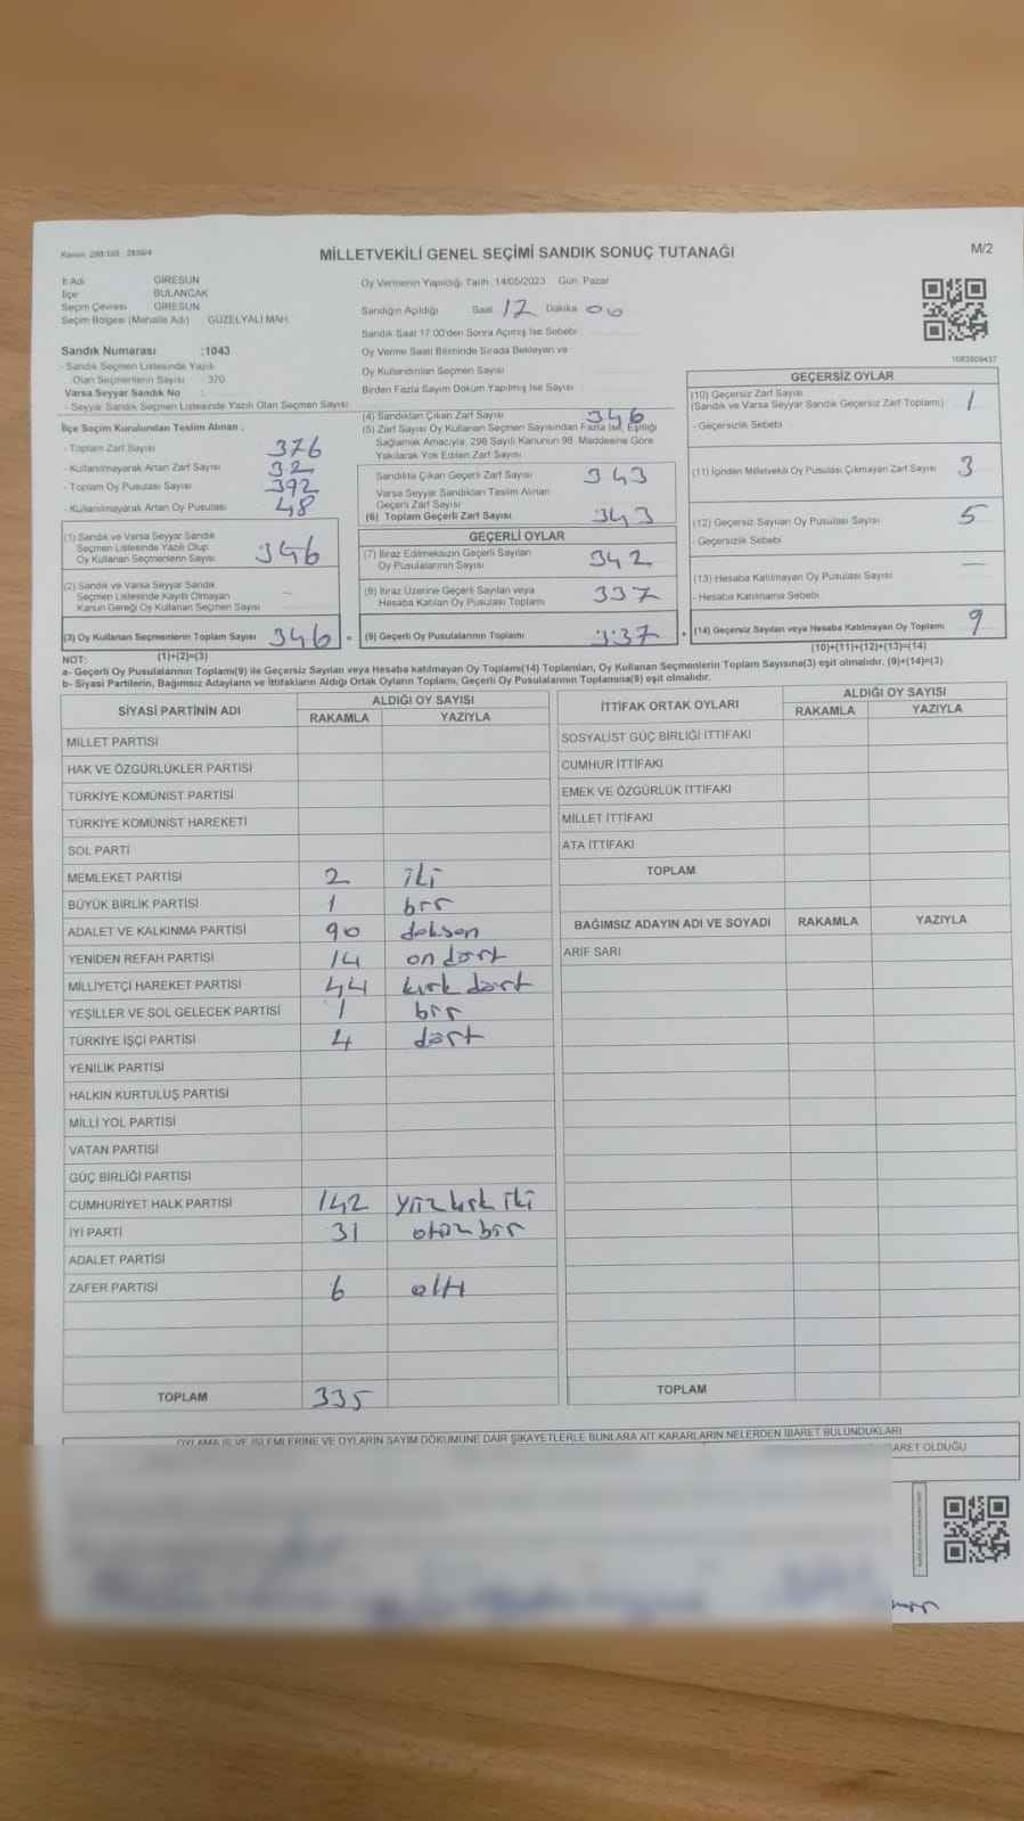 MİLLETVEKİLİ GENEL SEÇİMİ SANDIK SONUÇ TUTANAĞI
M/2
İl Adı GİRESUN
İlçe BULANCAK
Seçim Çevresi GİRESUN
Seçim Bölgesi (Mahalle Adı) GÜZELYALI MAH.
Sandık Numarası :1043
- Sandık Seçmen Listesinde Yazılı
Olan Seçmenlerin Sayısı : 370
Varsa Seyyar Sandık No
- Seyyar Sandık Seçmen Listesinde Yazılı Olan Seçmen Sayısı
İlçe Seçim Kurulundan Teslim Alınan :
- Toplam Zarf Sayısı 376
- Kullanılmayarak Artan Zarf Sayısı 32
- Toplam Oy Pusulası Sayısı 392
- Kullanılmayarak Artan Oy Pusulası 48
(1) Sandık ve Varsa Seyyar Sandık
Seçmen Listesinde Yazılı Olup
Oy Kullanan Seçmenlerin Sayısı 346
(2) Sandık ve Varsa Seyyar Sandık
Seçmen Listesinde Kayıtlı Olmayan
Kanun Gereği Oy Kullanan Seçmen Sayısı —
(3) Oy Kullanan Seçmenlerin Toplam Sayısı 346
(1)+(2)=(3)
Oy Vermenin Yapıldığı Tarih 14/05/2023 Gün: Pazar
Sandığın Açıldığı Saat 17 Dakika 00
Sandık Saat 17:00'den Sonra Açılmış İse Sebebi
Oy Verme Saati Bitiminde Sırada Bekleyen ve
Oy Kullandırılan Seçmen Sayısı
Birden Fazla Sayım Döküm Yapılmış İse Sayısı
(4) Sandıktan Çıkan Zarf Sayısı 346
(5) Zarf Sayısı Oy Kullanan Seçmen Sayısından Fazla İse, Eşitliği
Sağlamak Amacıyla, 298 Sayılı Kanunun 98. Maddesine Göre
Yakılarak Yok Edilen Zarf Sayısı
Sandıkta Çıkan Geçerli Zarf Sayısı 343
Varsa Seyyar Sandıktan Teslim Alınan
Geçerli Zarf Sayısı
(6) Toplam Geçerli Zarf Sayısı 343
GEÇERLİ OYLAR
(7) İtiraz Edilmeksizin Geçerli Sayılan
Oy Pusulalarının Sayısı 342
(8) İtiraz Üzerine Geçerli Sayılan veya
Hesaba Katılan Oy Pusulası Toplamı 337
(9) Geçerli Oy Pusulalarının Toplamı 337
GEÇERSİZ OYLAR
(10) Geçersiz Zarf Sayısı
(Sandık ve Varsa Seyyar Sandık Geçersiz Zarf Toplamı) 1
- Geçersizlik Sebebi
(11) İçinden Milletvekili Oy Pusulası Çıkmayan Zarf Sayısı 3
(12) Geçersiz Sayılan Oy Pusulası Sayısı 5
- Geçersizlik Sebebi
(13) Hesaba Katılmayan Oy Pusulası Sayısı —
- Hesaba Katılmama Sebebi
(14) Geçersiz Sayılan veya Hesaba Katılmayan Oy Toplamı 9
(10)+(11)+(12)+(13)=(14)
NOT:
a- Geçerli Oy Pusulalarının Toplamı(9) ile Geçersiz Sayılan veya Hesaba katılmayan Oy Toplamı(14) Toplamları, Oy Kullanan Seçmenlerin Toplam Sayısına(3) eşit olmalıdır. (9)+(14)=(3)
b- Siyasi Partilerin, Bağımsız Adayların ve İttifakların Aldığı Ortak Oyların Toplamı, Geçerli Oy Pusulalarının Toplamına(9) eşit olmalıdır.
SİYASİ PARTİNİN ADI ALDIĞI OY SAYISI
RAKAMLA YAZIYLA
MİLLET PARTİSİ
HAK VE ÖZGÜRLÜKLER PARTİSİ
TÜRKİYE KOMÜNİST PARTİSİ
TÜRKİYE KOMÜNİST HAREKETİ
SOL PARTİ
MEMLEKET PARTİSİ 2 iki
BÜYÜK BİRLİK PARTİSİ 1 bir
ADALET VE KALKINMA PARTİSİ 90 doksan
YENİDEN REFAH PARTİSİ 14 on dört
MİLLİYETÇİ HAREKET PARTİSİ 44 kırk dört
YEŞİLLER VE SOL GELECEK PARTİSİ 1 bir
TÜRKİYE İŞÇİ PARTİSİ 4 dört
YENİLİK PARTİSİ
HALKIN KURTULUŞ PARTİSİ
MİLLİ YOL PARTİSİ
VATAN PARTİSİ
GÜÇ BİRLİĞİ PARTİSİ
CUMHURİYET HALK PARTİSİ 142 yüz kırk iki
İYİ PARTİ 31 otuz bir
ADALET PARTİSİ
ZAFER PARTİSİ 6 altı
TOPLAM 335
İTTİFAK ORTAK OYLARI ALDIĞI OY SAYISI
RAKAMLA YAZIYLA
SOSYALİST GÜÇ BİRLİĞİ İTTİFAKI
CUMHUR İTTİFAKI
EMEK VE ÖZGÜRLÜK İTTİFAKI
MİLLET İTTİFAKI
ATA İTTİFAKI
TOPLAM
BAĞIMSIZ ADAYIN ADI VE SOYADI RAKAMLA YAZIYLA
ARİF SARI
TOPLAM
OYLAMA İŞ VE İŞLEMLERİNE VE OYLARIN SAYIM DÖKÜMÜNE DAİR ŞİKAYETLERLE BUNLARA AİT KARARLARIN NELERDEN İBARET BULUNDUKLARI
ARET OLDUĞU